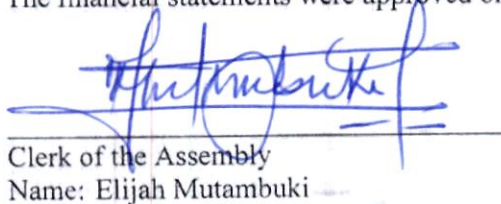 The financial statements were approved o
Mutambuki
Clerk of the Assembly
Name: Elijah Mutambuki